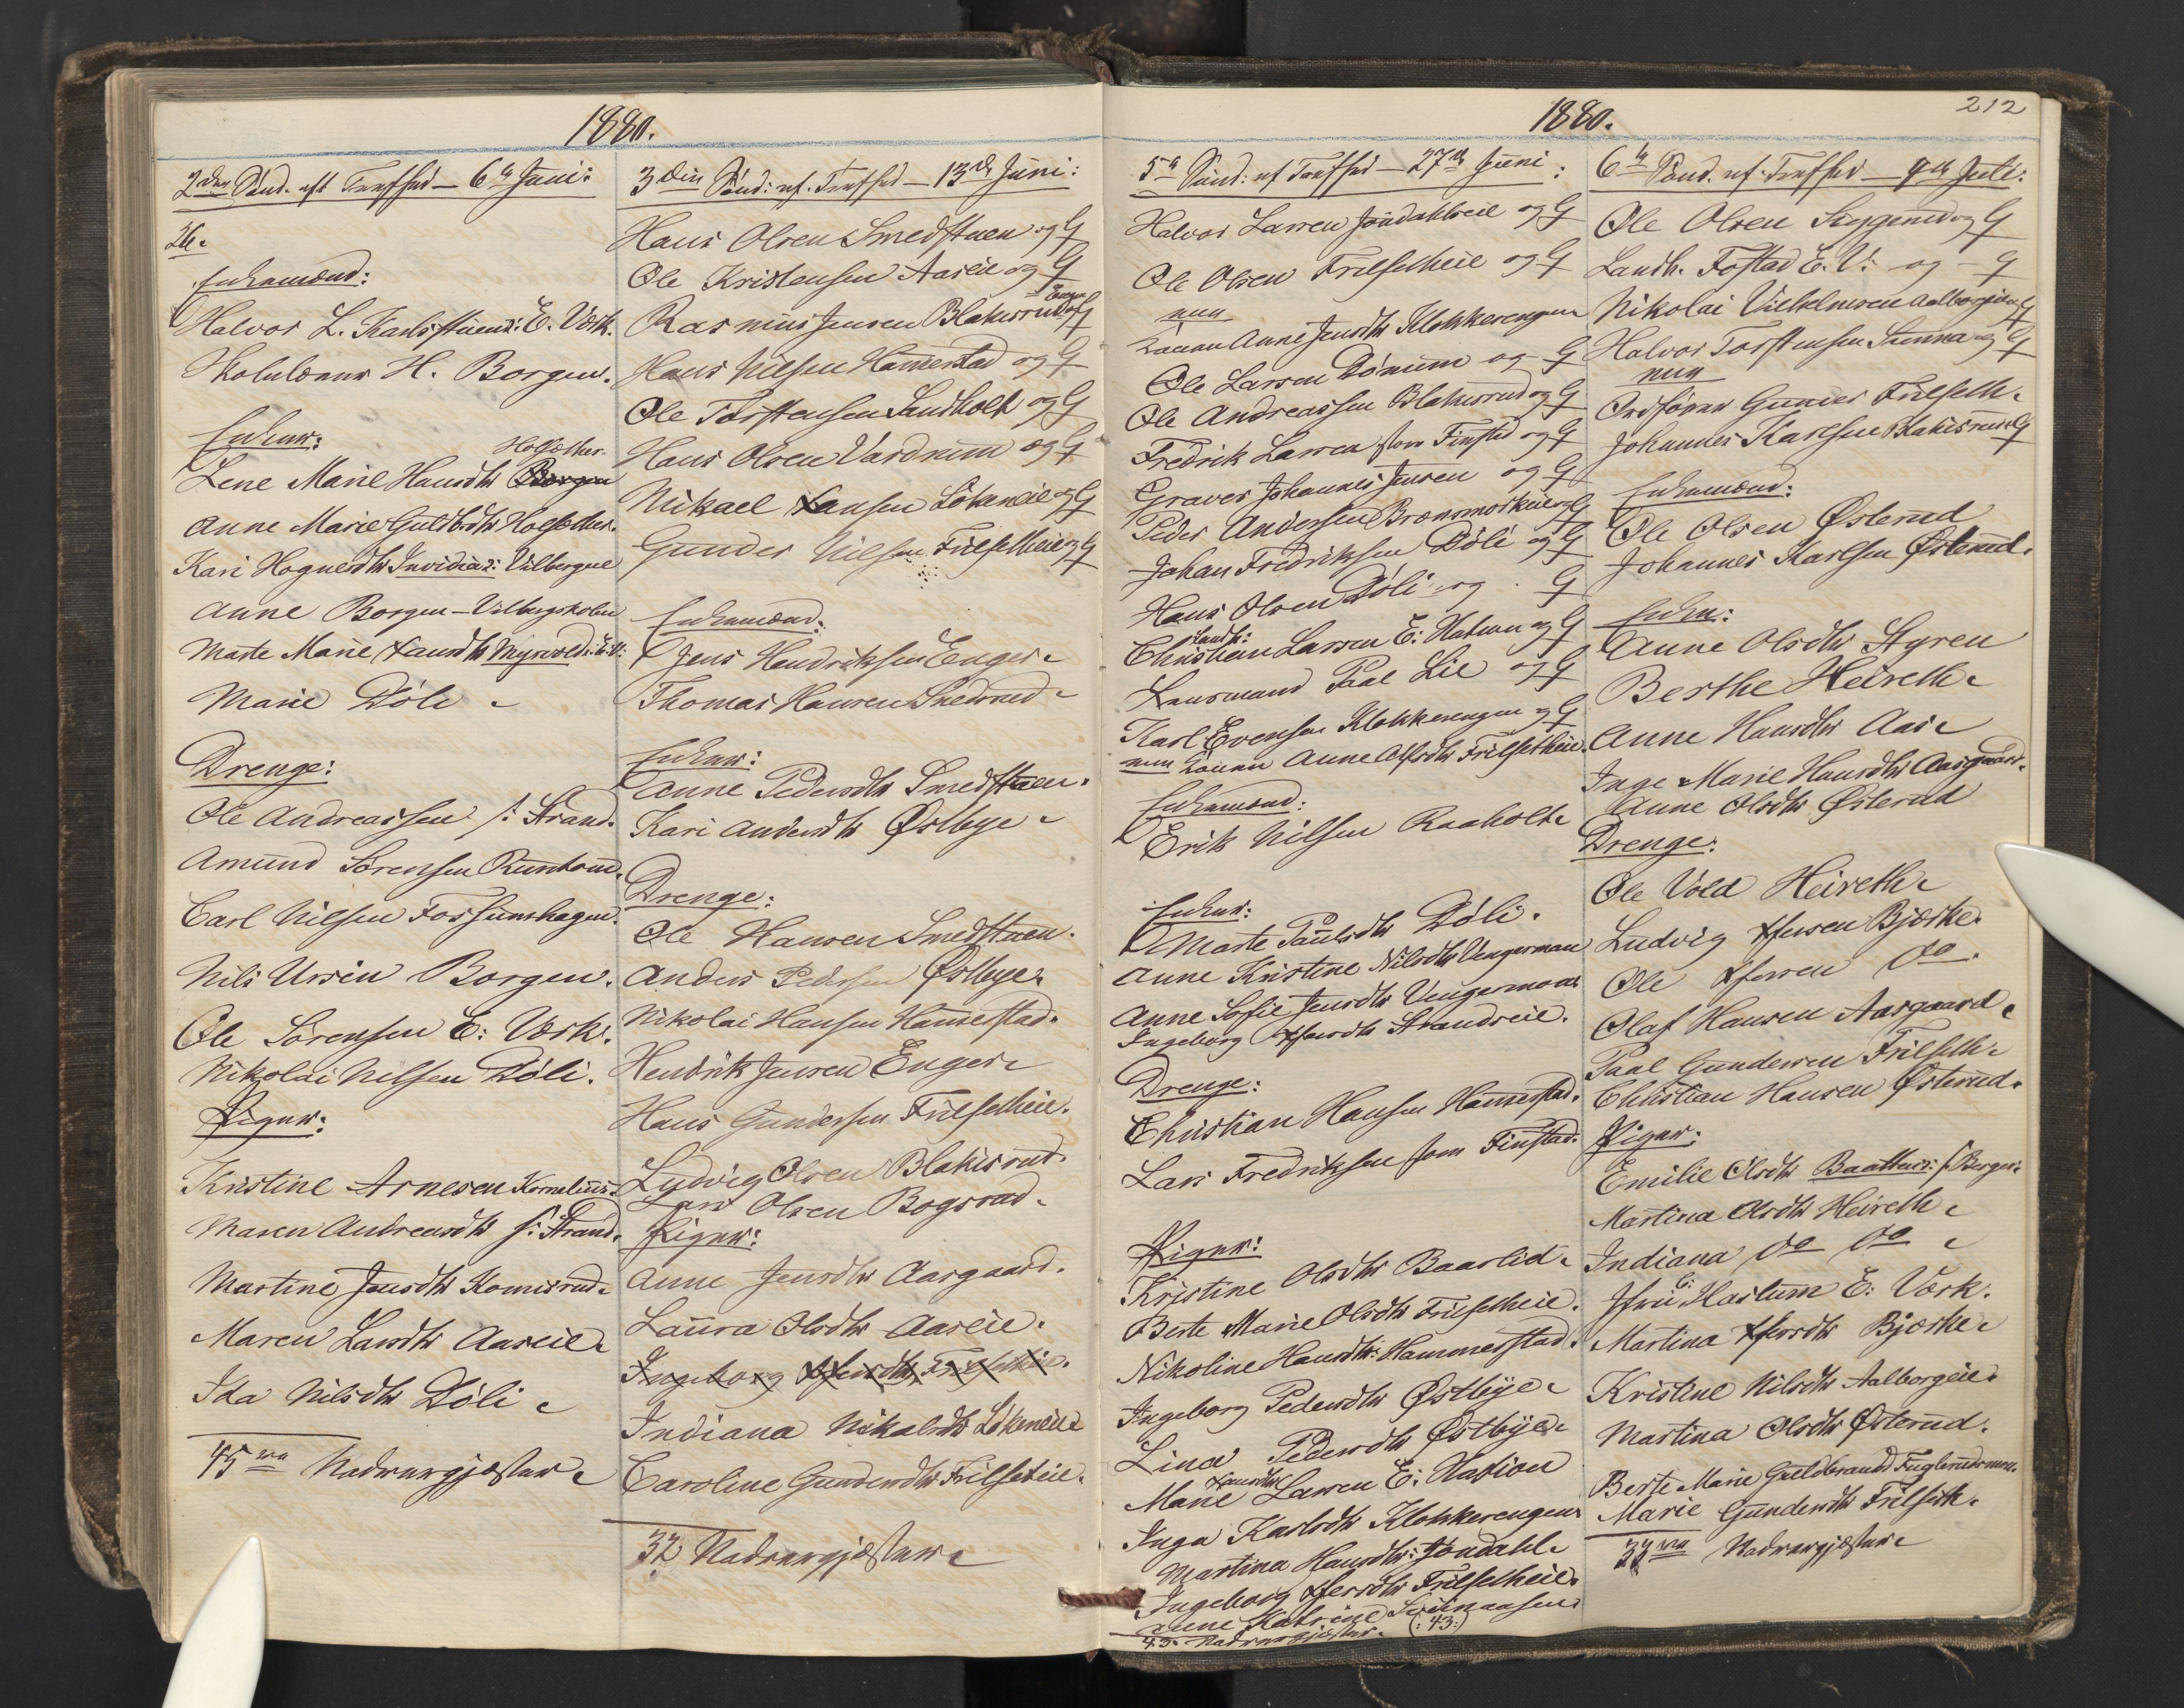 1880.
2den Sønd. eft Treffhed – 6te Juni:
26.
Enkemænd:
Halvor L. Karlsstuen: E. Værk.
Skolelærer H. Borgen.
Enker:
Holsæther.
Lene Marie Hansdtr Borgen
Anne Marie Guldbrdtr Holsæther.
Kari Hognesdtr Invidia: Vilbergeie
Anne Borgen – Vilbergskolen
Marte Marie Larsdtr Myrvold: E.V:
Marie Döli
Drenge:
Ole Andreassen s: Strand.
Amund Sörensen Runtom.
Carl Nilsen Fossumshagen.
Nils Ursin Borgen.
Ole Sörensen E: Værk.
Nikolai Nilsen Döli.
Piger:
Kristine Arnesen Kornelius.
Maren Andreasdtr s: Strand.
Martine Jensdtr Komisrud.
Maren Larsdtr Aaseie.
Ida Nilsdtr Döli
45 Nadvergjæster
3die Sønd: ef. Treffhed – 13de Juni:
Hans Olsen Smedstuen og G
Ole Kristensen Aaseie og G
Enger
Rasmus Jensen Blakisrud og G
Hans Nilsen Hammerstad og G
Ole Torstensen Sandholt og G
Hans Olsen Vardrum og G
Mikael Larsen Lökeneie og G
Gunder Nilsen Frilsetheie og G
Enkemænd:
Jens Hendriksen Enger.
Thomas Hansen Snedsrud.
Enker:
Anne Pedersdtr Smedstuen.
Kari Andersdtr Østbye.
Drenge:
Ole Hansen Smedstuen.
Anders Pedersen Østbye.
Nikolai Hansen Hammerstad.
Hendrik Jensen Enger.
Hans Gundersen Frilsetheie.
Ludvig Olsen Blakisrud.
Lars Olsen Bogsrud.
Piger:
Anne Jensdtr Aasgaard.
Laura Olsdtr Aaseie.
Ingeborg Iversdtr Frilsetheie.
Indiana Mikalsdtr Lökeneie
Caroline Gundersdtr Frilseteie.
32 Nadvergjæster
1880.
212
5te Sønd: ef Treffhed – 27de Juni:
Halvor Larsen Jöndahlseie og G
Ole Olsen Frilsetheie og G
men
Konen Anne Jensdtr Klokkerengen
Ole Larsen Dönnum og G
Ole Andreassen Blakisrud og G
Fredrik Larsen som Finstad og G
Graver Johannes Jensen og G
Peder Andersen Brænsmorkeie og G
Johan Fredriksen Döli og G
Hans Olsen Döli og G
Landh:
Christian Larsen E: Station og G
Lensmand Paal Lie og G
Karl Evensen Klokkerengen og G
men Konen Anne Olsdtr Frilsetheie.
Enkemænd:
Erik Nilsen Raaholt.
Enker:
Marte Paulsdtr Döli.
Anne Kristine Nilsdtr Vengermoen
Anne Sofie Jensdtr Vengermoen
Ingeborg Iversdtr Strandseie.
Drenge:
Christian Hansen Hammerstad.
Lars Fredriksen som Finstad.
Piger:
Kristine Olsdtr Baarlid.
Berte Marie Olsdtr Frilsetheie.
Nikoline Hansdtr: Hammerstad.
Ingeborg Pedersdtr Østbye.
Lina Pedersdtr Østbye.
Landh:
Marie Larsen E: Station
Inga Karlsdtr Klokkerengen
Martina Hansdtr: Jöndahl.
Ingeborg Iversdtr Frilsetheie.
Anne Katrine
43. Nadvergjæster. (:43:)
6te Sønd. ef. Treffhed – 4de Juli:
Ole Olsen Styggerud og G
Landh. Fostad E. V: og – G
Nikolai Vilhelmsen Aalborgeie og G
Halvor Torstensen Stenna og G
men
Ordförer Gunder Frilseth.
Johannes Karlsen Blakisrud og G
Enkemænd:
Ole Olsen Østerud
Johannes Karlsen Østerud.
Enker:
Anne Olsdtr Styren
Berthe Heireth.
Anne Hansdtr Aas.
Inge Marie Hansdtr Aasgaard.
Anne Olsdtr Østerud
Drenge:
Ole Vold Heireth.
Ludvig Iversen Bjørke.
Ole Iversen do.
Olaf Hansen Aasgaard.
Paal Gundersen Frilseth.
Christian Hansen Østerud.
Piger:
Emilie Olsdtr Baathus: s: Berger.
Martina Olsdtr Heireth.
Indiana do do
C:
Jfru Hastum E: Værk.
Martina Iversdtr Bjørke.
Kristine Nilsdtr Aalborgeie.
Martina Olsdtr Østerud.
Berte Marie Guldbrandsd Fuglerudsmoen.
Marie Gundersdtr Frilseth.
33 Nadvergjæster